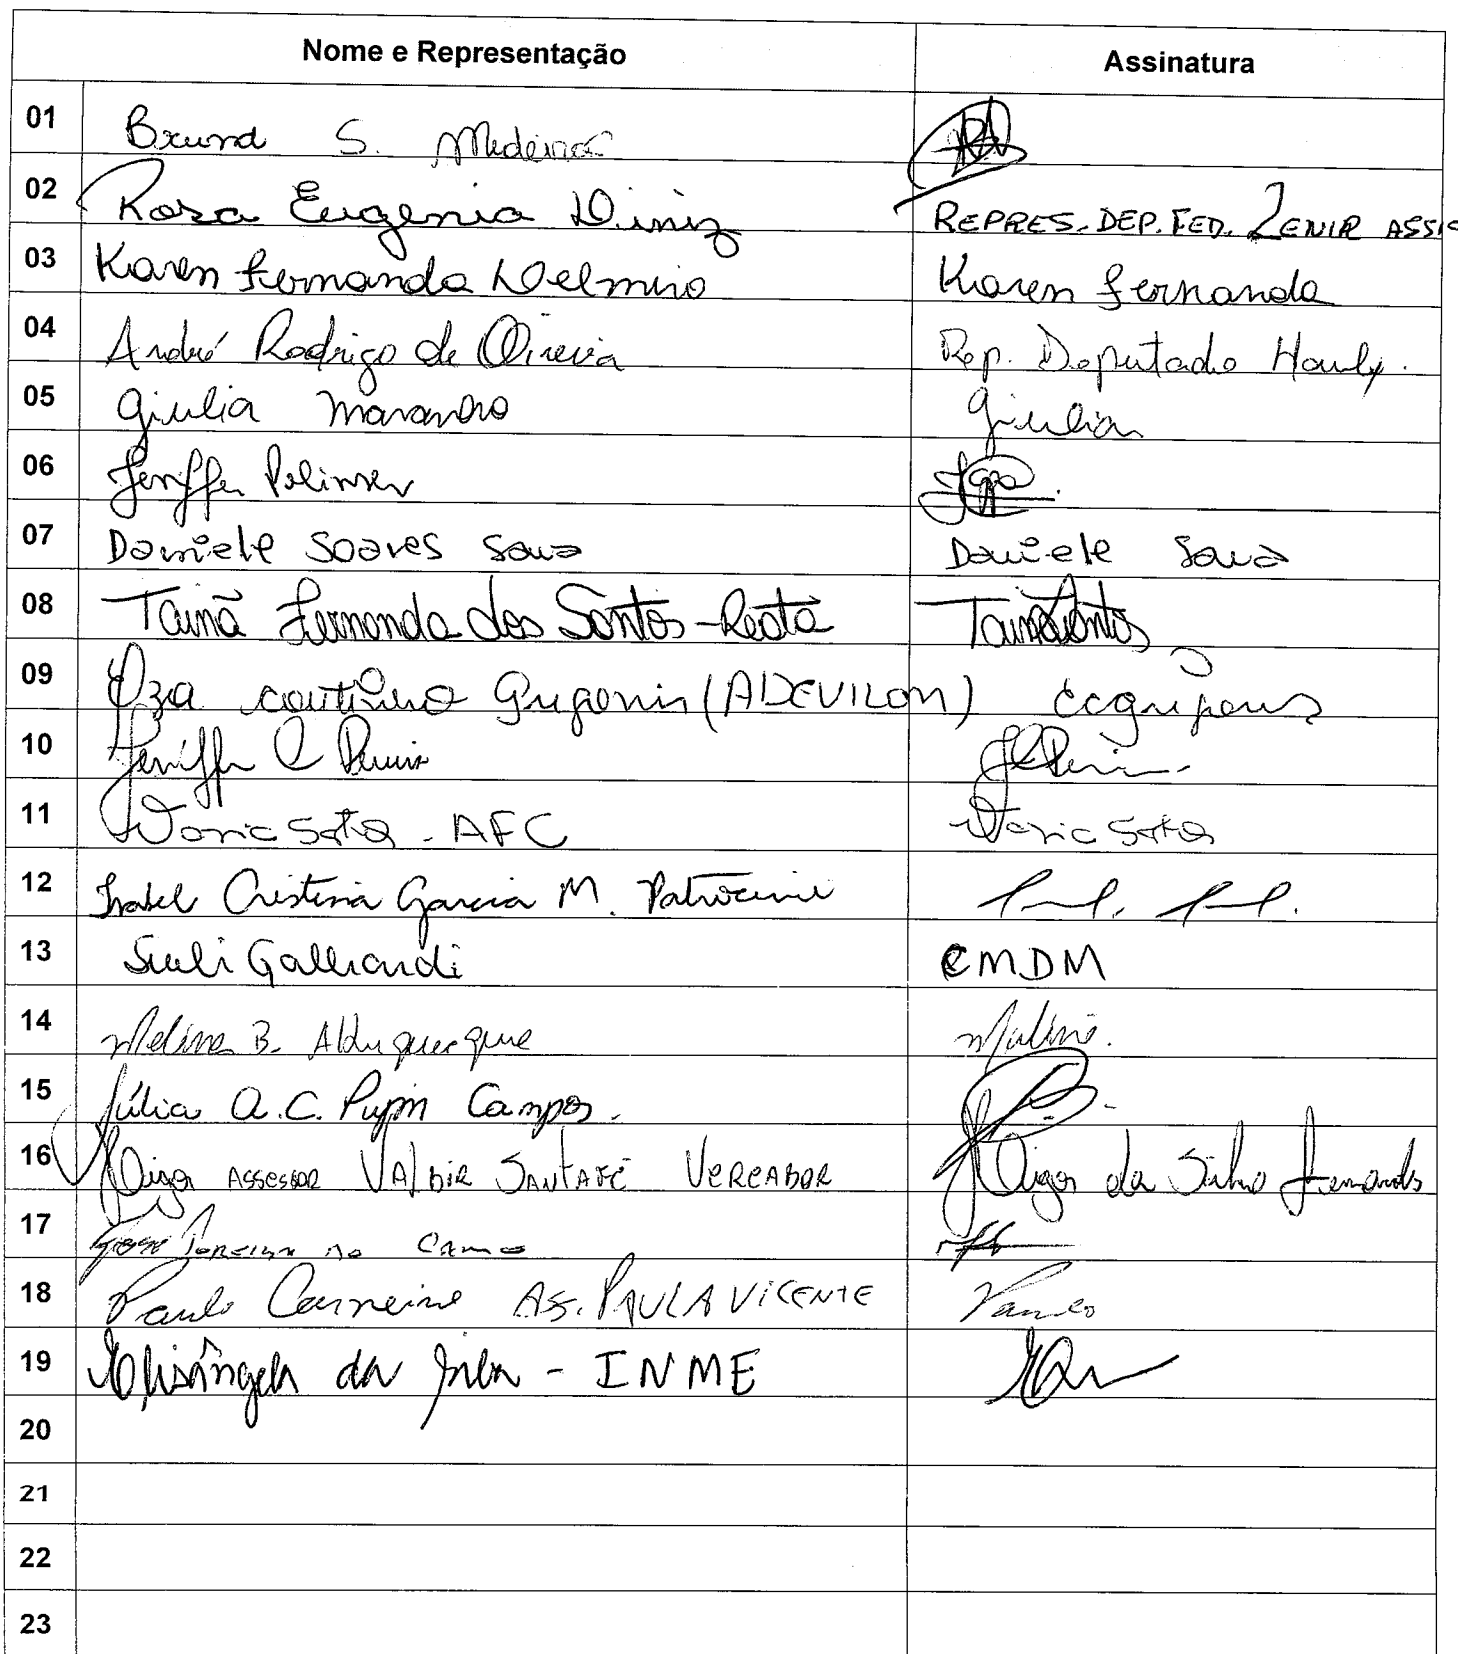 Nome e Representação Assinatura
01 Bruna S. Medeiros
02 Rosa Eugenia Diniz REPRES. DEP. FED. ZENIR ASSIS
03 Karen Fernanda Delmiro Karen Fernanda
04 André Rodrigo de Oliveira Rep. Deputado Hauly.
05 Giulia Marandro Giulia
06 Jeniffer
07 Daniele Soares Sousa Daniele Sousa
08 Tainã Fernanda dos Santos-Reatá Tainã Santos
09 coutinho (ADEVILON)
10 Jeniffer C
11 - AFC
12 Isabel Cristina Garcia M. Patrocinio
13 Sueli Galhardi CMDM
14 Meline B. Albuquerque
15 Júlia A. C. Pupim Campos.
16 ASSESSOR VALDIR SANTAFÉ VEREADOR da Silva Fernandes
17 José
18 Paulo Carneiro AS. PAULA VICENTE Paulo
19 Elisângela da Silva - INME
20
21
22
23